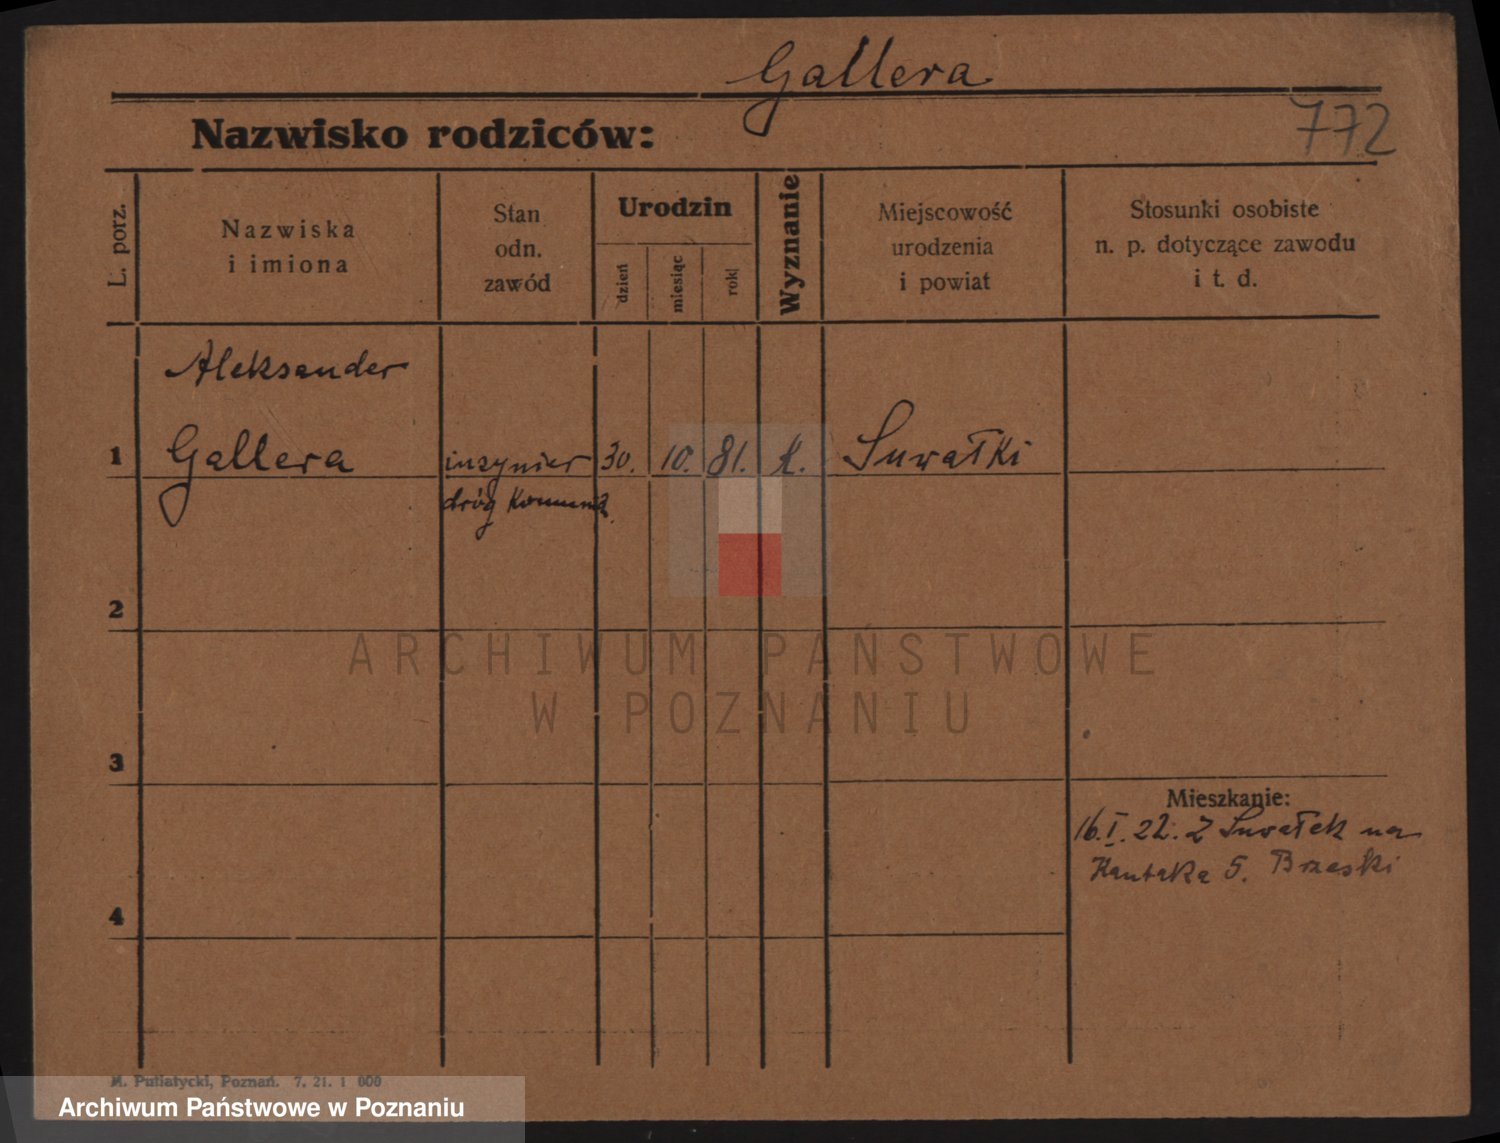 Gallera
772
Nazwisko rodziców:
L. porz.
Nazwiska
i imiona
Stan
odn.
zawód
Urodzin
dzień
miesiąc
rok
Wyznanie
Miejscowość
urodzenia
i powiat
Stosunki osobiste
n. p. dotyczące zawodu
i t. d.
Aleksander
1 Gallera inzynier 30. 10. 81. k. Suwałki
dróg komunik.
2
ARCHIWUM PAŃSTWOWE
W POZNANIU
3
Mieszkanie:
16.I.22. Z Suwałek na
Kantaka 5. Brzeski
4
M. Putiatycki, Poznań. 7. 21. 1 000
Archiwum Państwowe w Poznaniu